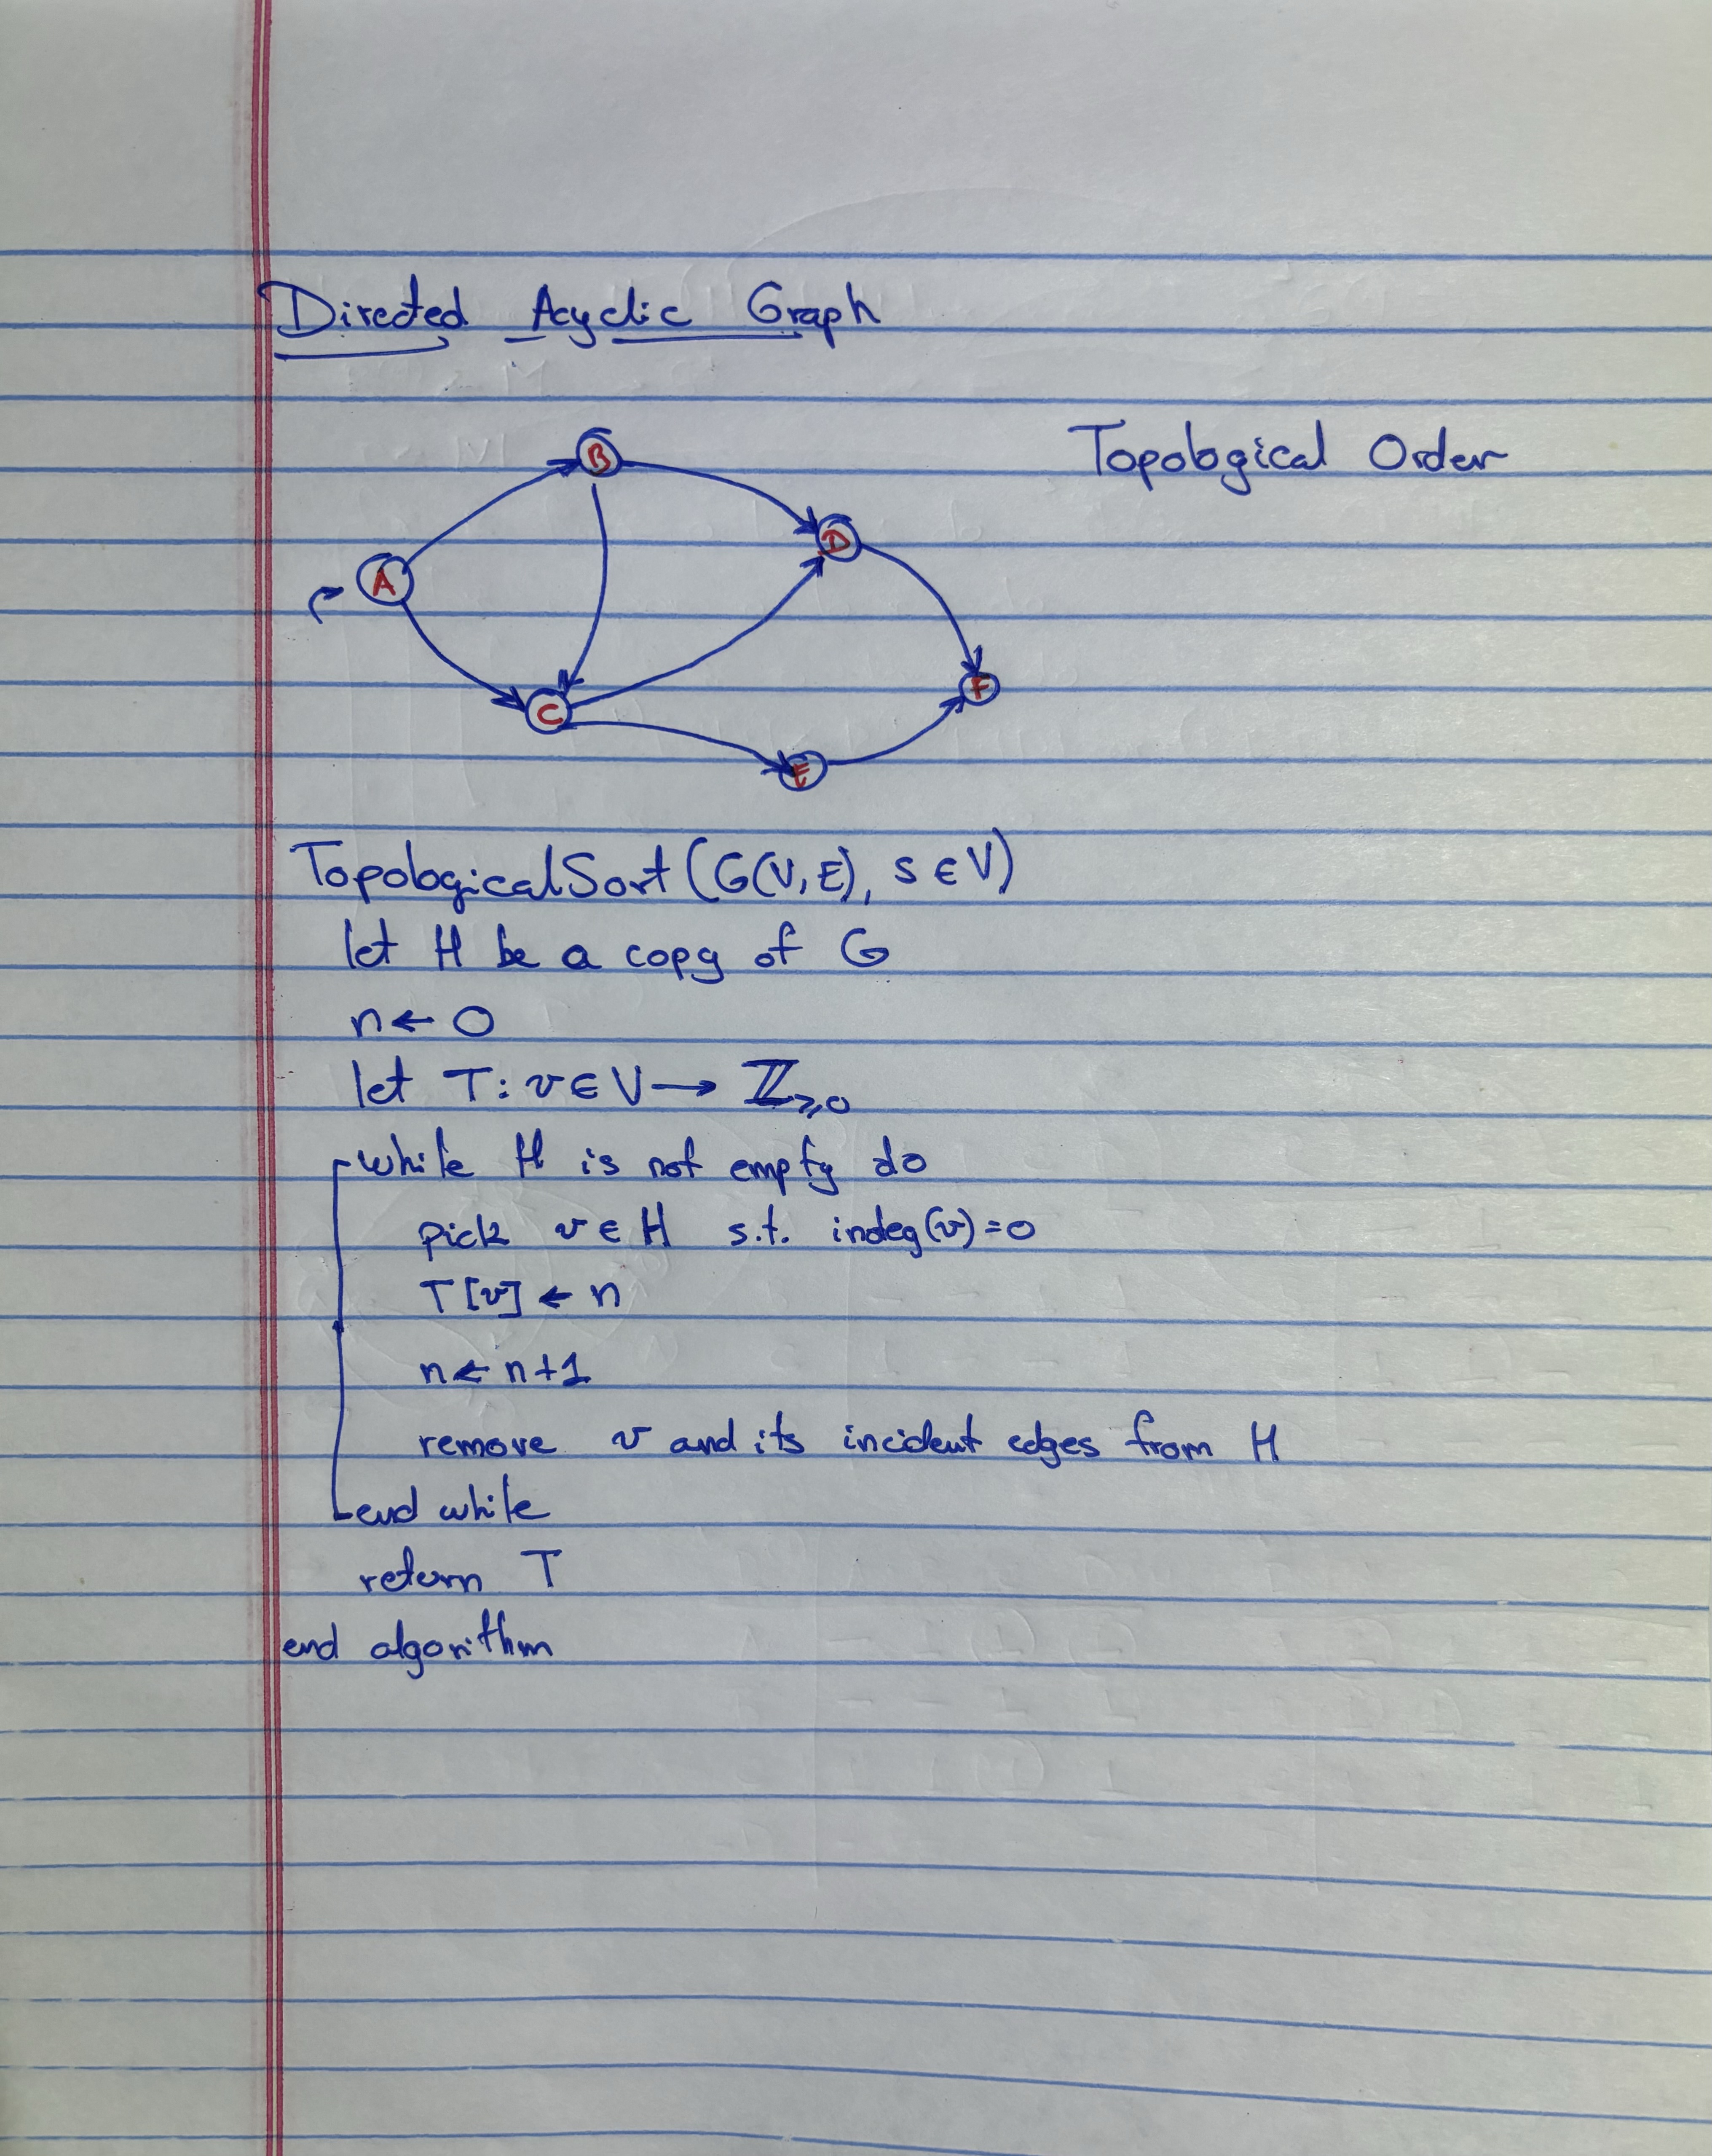 Directed Acyclic Graph
Topological Order
B
D
A
F
C
E
TopologicalSort (G(V,E), s ∈ V)
let H be a copy of G
n ← 0
let T: v ∈ V → ℤ≥0
while H is not empty do
pick v ∈ H s.t. indeg(v) = 0
T[v] ← n
n ← n+1
remove v and its incident edges from H
end while
return T
end algorithm